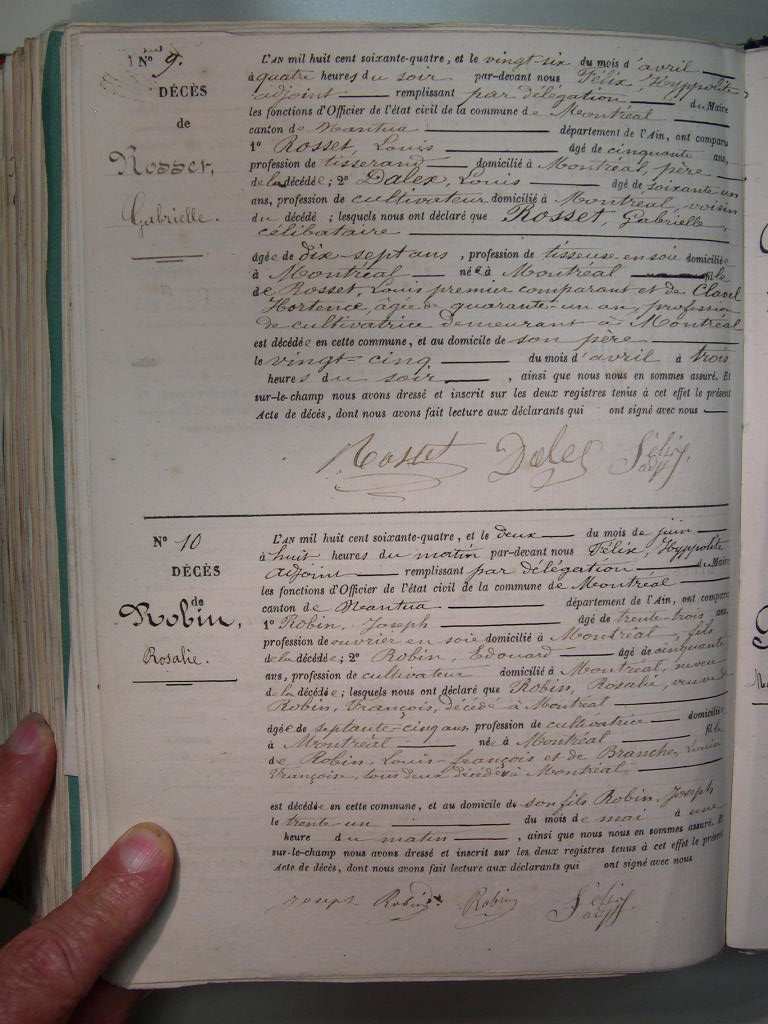 N° 9.
DÉCÈS
de
Rosset,
Gabrielle.
L'AN mil huit cent soixante-quatre, et le vingt-six du mois d'avril
à quatre heures du soir par-devant nous Félix, Hyppolite
adjoint remplissant par délégation du Maire
les fonctions d'Officier de l'état civil de la commune de Montréal
canton de Nantua département de l'Ain, ont comparu
1° Rosset, Louis âgé de cinquante ans,
profession de tisserand domicilié à Montréal, père
de la décédée; 2° Dalex, Louis âgé de soixante-un
ans, profession de cultivateur domicilié à Montréal, voisin
du décédé; lesquels nous ont déclaré que Rosset, Gabrielle,
célibataire
âgée de dix-sept ans, profession de tisseuse en soie domiciliée
à Montréal née à Montréal fille
de Rosset, Louis premier comparant et de Clavel
Hortence, âgée de quarante-un an, profession
de cultivatrice demeurant à Montréal
est décédée en cette commune, et au domicile de son père
le vingt-cinq du mois d'avril à trois
heures du soir, ainsi que nous nous en sommes assuré. Et
sur-le-champ nous avons dressé et inscrit sur les deux registres tenus à cet effet le présent
Acte de décès, dont nous avons fait lecture aux déclarants qui ont signé avec nous
Rosset Dalex Félix
adj.
N° 10
DÉCÈS
de
Robin,
Rosalie.
L'AN mil huit cent soixante-quatre, et le deux du mois de juin
à huit heures du matin par-devant nous Félix, Hyppolite
Adjoint remplissant par délégation du Maire
les fonctions d'Officier de l'état civil de la commune de Montréal
canton de Nantua département de l'Ain, ont comparu
1° Robin, Joseph âgé de trente-trois ans,
profession de ouvrier en soie domicilié à Montréal, fils
de la décédée; 2° Robin, Edouard âgé de cinquante
ans, profession de cultivateur domicilié à Montréal, neveu
de la décédée; lesquels nous ont déclaré que Robin, Rosalie, veuve de
Robin, François, décédé à Montréal
âgée de septante-cinq ans profession de cultivatrice domiciliée
à Montréal née à Montréal fille
de Robin, Louis-françois et de Branche, Louise
Françoise, tous deux décédés à Montréal
est décédée en cette commune, et au domicile de son fils Robin, Joseph
le trente-un du mois de mai à une
heure du matin, ainsi que nous nous en sommes assuré. Et
sur-le-champ nous avons dressé et inscrit sur les deux registres tenus à cet effet le présent
Acte de décès, dont nous avons fait lecture aux déclarants qui ont signé avec nous
Joseph Robin Robin Félix
adj.